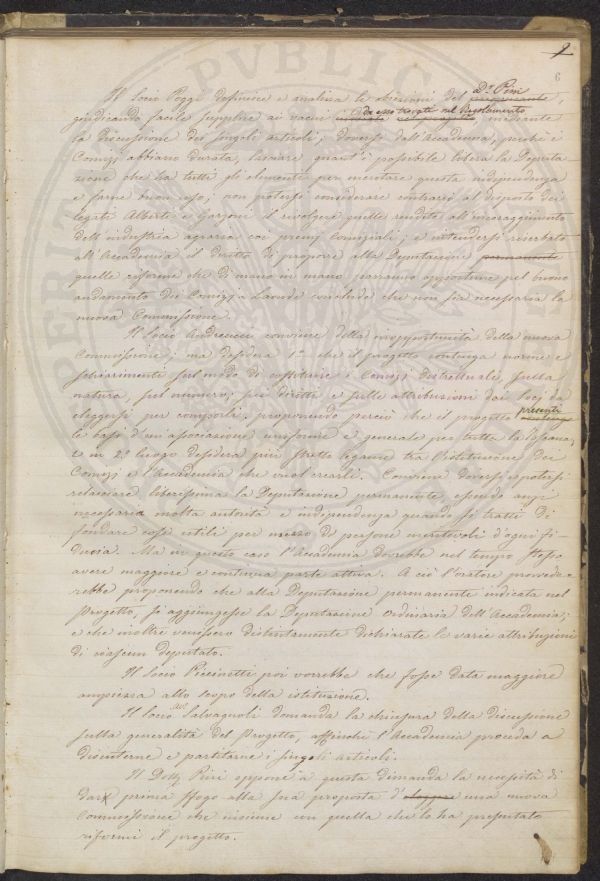 9
6
Il Socio Poggi definisce e analizza le obiezioni del D.r Piri,
giudicando facile supplire ai vacui da esso trovati nel Regolamento mediante
la discussione dei singoli articoli; doversi dall'Accademia, perchè i
Comizj abbiano durata, lasciare quant'è possibile libera la Deputa
zione che ha tutti gli elementi per meritare questa indipendenza
e farne buon uso; non potersi considerare contrario al disposto dei
legati Alberti e Garzoni il rivolgere quelle rendite all'incoraggimento
dell'industria agraria coi premj Comiziali; e intendersi riserbato
all'Accademia il diritto di proporre alla Deputazione permanente
quelle riforme che di mano in mano parranno opportune pel buono
andamento dei Comizj: laonde conclude che non sia necessaria la
nuova Commissione.
Il Socio Andreucci conviene della inopportunità della nuova
Commissione; ma desidera 1.o che il progetto contenga norme e
schiarimenti sul modo di costituire i Comizj distrettuali, sulla
natura, sul numero, sui diritti e sulle attribuzioni dei Socj da
eleggersi per comporli, proponendo perciò che il progetto presenti
le basi d'un'associazione uniforme e generale per tutta la Toscana;
e in 2.o luogo desidera più stretto legame tra l'istituzione dei
Comizj e l'Accademia che vuol crearli. Conviene doversi e potersi
rilasciare liberissima la Deputazione permanente, essendo anzi
necessaria molta autorità e indipendenza quando si tratti di
fondare cose utili per mezzo di persone meritevoli d'ogni fi-
ducia. Ma in questo caso l'Accademia dovrebbe nel tempo stesso
avere maggiore e continua parte attiva. A ciò l'oratore provvede-
rebbe proponendo che alla Deputazione permanente indicata nel
Progetto, si aggiungesse la Deputazione Ordinaria dell'Accademia;
e che inoltre venissero distintamente dichiarate le varie attribuzioni
di ciascun deputato.
Il Socio Piccinetti poi vorrebbe che fosse data maggiore
ampiezza allo scopo della istituzione.
Il Socio Avv. Salvagnoli domanda la chiusura della discussione
sulla generalità del Progetto, affinchè l'Accademia proceda a
discuterne e partitarne i singoli articoli.
Il Dott. Piri oppone a questa dimanda la necessità di
dar prima sfogo alla sua proposta d'eleggere una nuova
Commissione che insieme con quella che lo ha presentato
riformi il progetto.